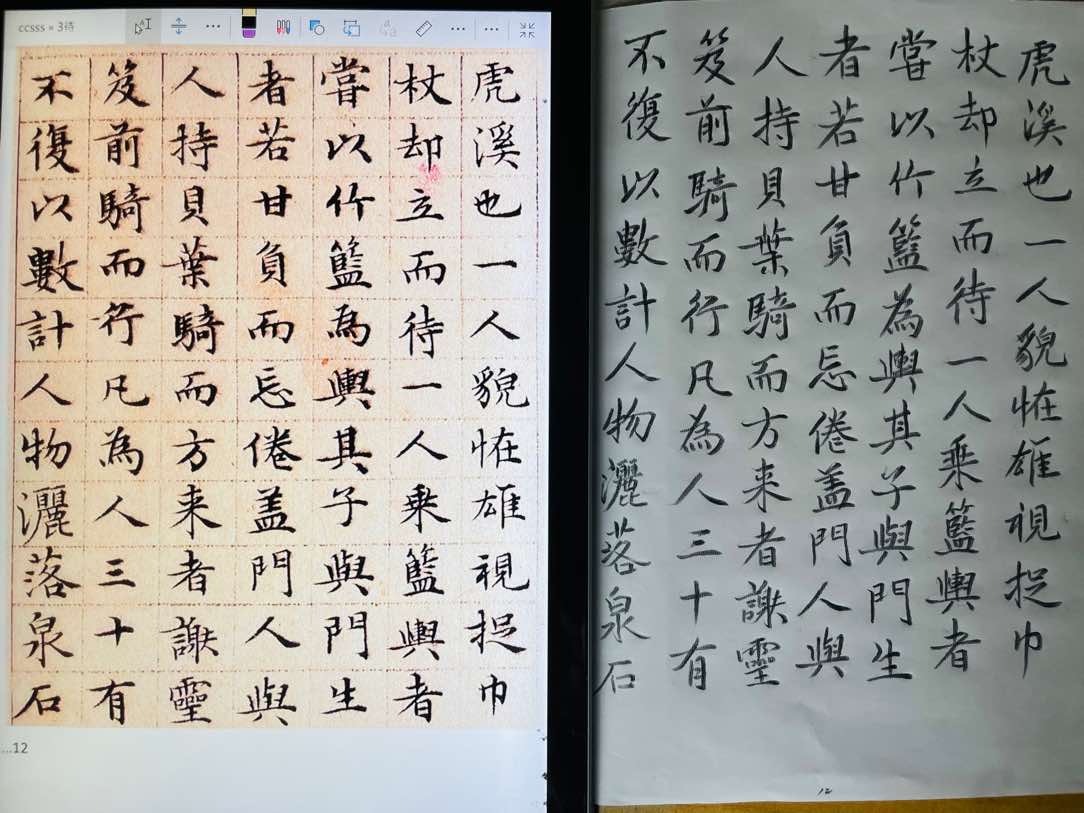 ccsss × 3待
虎溪也一人貌恠雄視捉巾
杖却立而待一人乗籃輿者
嘗以竹籃為輿其子與門生
者若甘負而忘倦盖門人與
人持貝葉騎而方来者謝靈
笈前騎而行凡為人三十有
不復以數計人物灑落泉石
...12
虎溪也一人貌恠雄視捉巾
杖却立而待一人乗籃輿者
嘗以竹籃為輿其子與門生
者若甘負而忘倦盖門人與
人持貝葉騎而方来者謝靈
笈前騎而行凡為人三十有
不復以數計人物灑落泉石
12